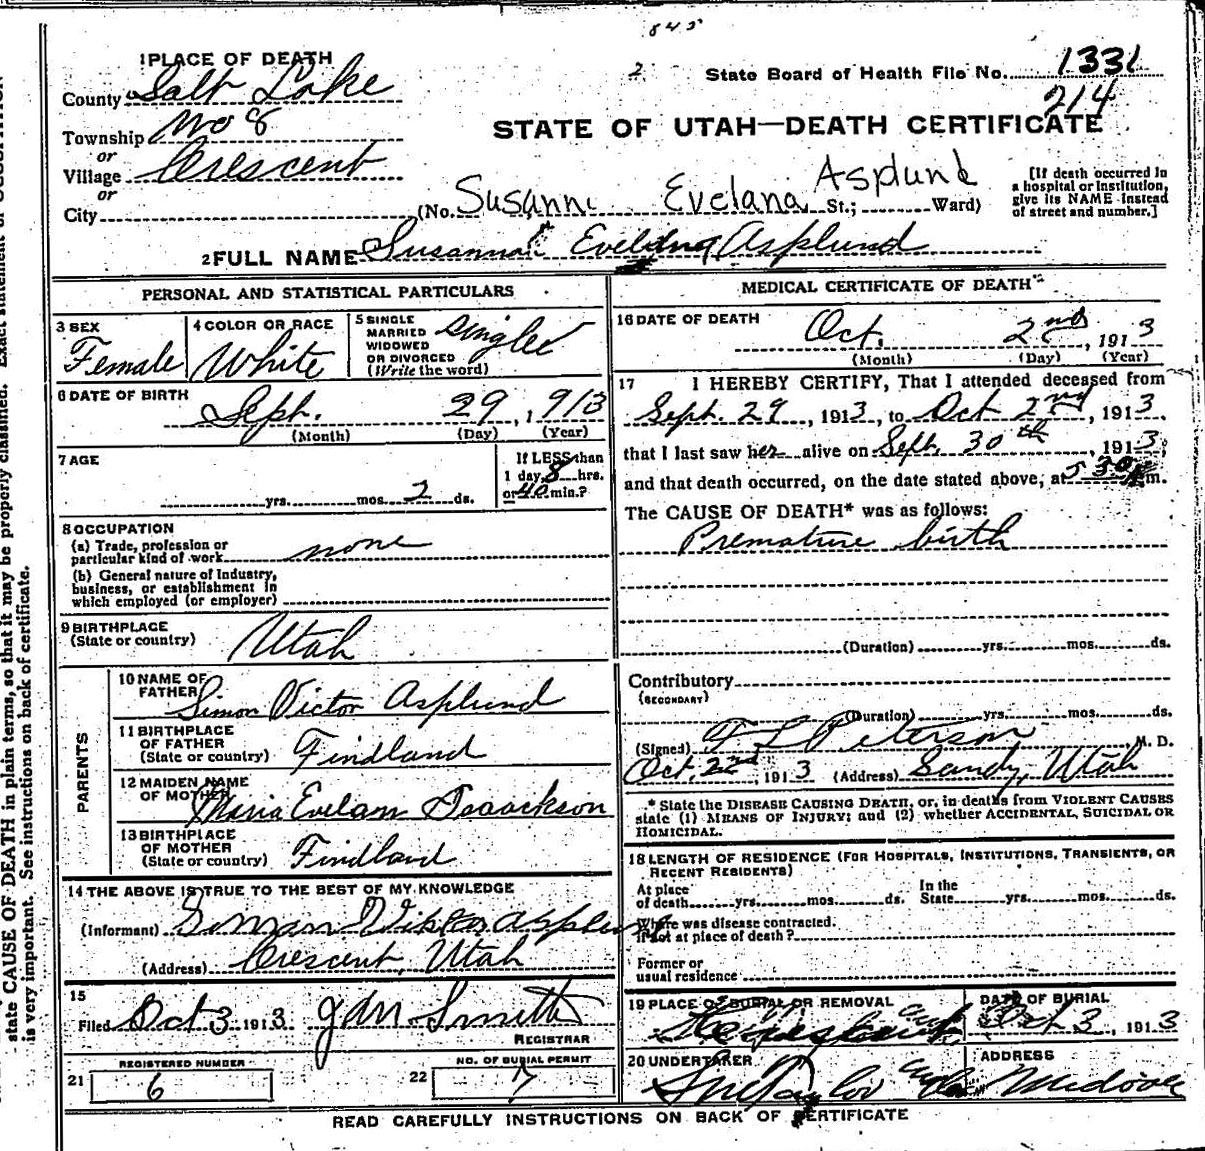 843
1 PLACE OF DEATH
County Salt Lake
2 State Board of Health File No. 1331
214
Township No 8
or
Village Crescent
or
City (No. Susanna Evelana Asplund St.; Ward)
STATE OF UTAH—DEATH CERTIFICATE
[If death occurred in
a hospital or institution,
give its NAME instead
of street and number.]
2 FULL NAME Susannah Evelina Asplund
PERSONAL AND STATISTICAL PARTICULARS
3 SEX
Female
4 COLOR OR RACE
White
5 SINGLE
MARRIED
WIDOWED
OR DIVORCED
(Write the word)
Singled
6 DATE OF BIRTH
Seph. 29, 1913
(Month) (Day) (Year)
7 AGE
yrs. mos. 2 ds.
If LESS than
1 day, 8 hrs.
or 40 min.?
8 OCCUPATION
(a) Trade, profession or
particular kind of work none
(b) General nature of Industry,
business, or establishment in
which employed (or employer)
9 BIRTHPLACE
(State or country) Utah
PARENTS
10 NAME OF
FATHER Simon Victor Asplund
11 BIRTHPLACE
OF FATHER
(State or country) Findland
12 MAIDEN NAME
OF MOTHER Maria Evelam Isaackson
13 BIRTHPLACE
OF MOTHER
(State or country) Findland
14 THE ABOVE IS TRUE TO THE BEST OF MY KNOWLEDGE
(Informant) Siman Viktor Asplund
(Address) Crescent, Utah
15
Filed Oct 3, 1913 Jam Smith
REGISTRAR
REGISTERED NUMBER
21 6
NO. OF BURIAL PERMIT
22 7
MEDICAL CERTIFICATE OF DEATH
16 DATE OF DEATH
Oct. 2nd, 1913
(Month) (Day) (Year)
17 I HEREBY CERTIFY, That I attended deceased from
Sept. 29, 1913, to Oct 2nd, 1913.
that I last saw her alive on Sept. 30th, 1913,
and that death occurred, on the date stated above, at 5 30 m.
The CAUSE OF DEATH* was as follows:
Premature birth
(Duration) yrs. mos. ds.
Contributory
(SECONDARY)
(Duration) yrs. mos. ds.
(Signed) F L Peterson M. D.
Oct. 22nd, 1913 (Address) Sandy, Utah
* State the DISEASE CAUSING DEATH, or, in deaths from VIOLENT CAUSES
state (1) MEANS OF INJURY; and (2) whether ACCIDENTAL, SUICIDAL OR
HOMICIDAL.
18 LENGTH OF RESIDENCE (FOR HOSPITALS, INSTITUTIONS, TRANSIENTS, OR
RECENT RESIDENTS)
At place
of death yrs. mos. ds.
In the
State yrs. mos. ds.
Where was disease contracted.
if not at place of death?
Former or
usual residence
19 PLACE OF BURIAL OR REMOVAL
DATE OF BURIAL
Oct 3, 1913
20 UNDERTAKER
Taylor
ADDRESS
Midvale
READ CAREFULLY INSTRUCTIONS ON BACK OF CERTIFICATE
state CAUSE OF DEATH in plain terms, so that it may be properly classified. Exact statement of OCCUPATION
is very important. See instructions on back of certificate.